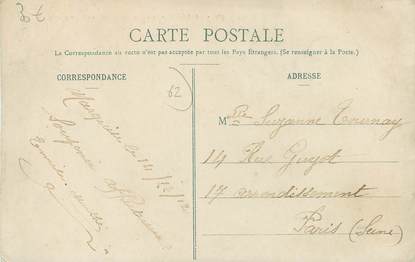 30 €
CARTE POSTALE
La Correspondance au recto n'est pas acceptée par tous les Pays Étrangers. (Se renseigner à la Poste.)
CORRESPONDANCE
62
Marquise le 14/12/12
Souvenir affectueux
ADRESSE
Mlle Suzanne Tournay
14 Rue Guyot
17 arrondissement
Paris (Seine)